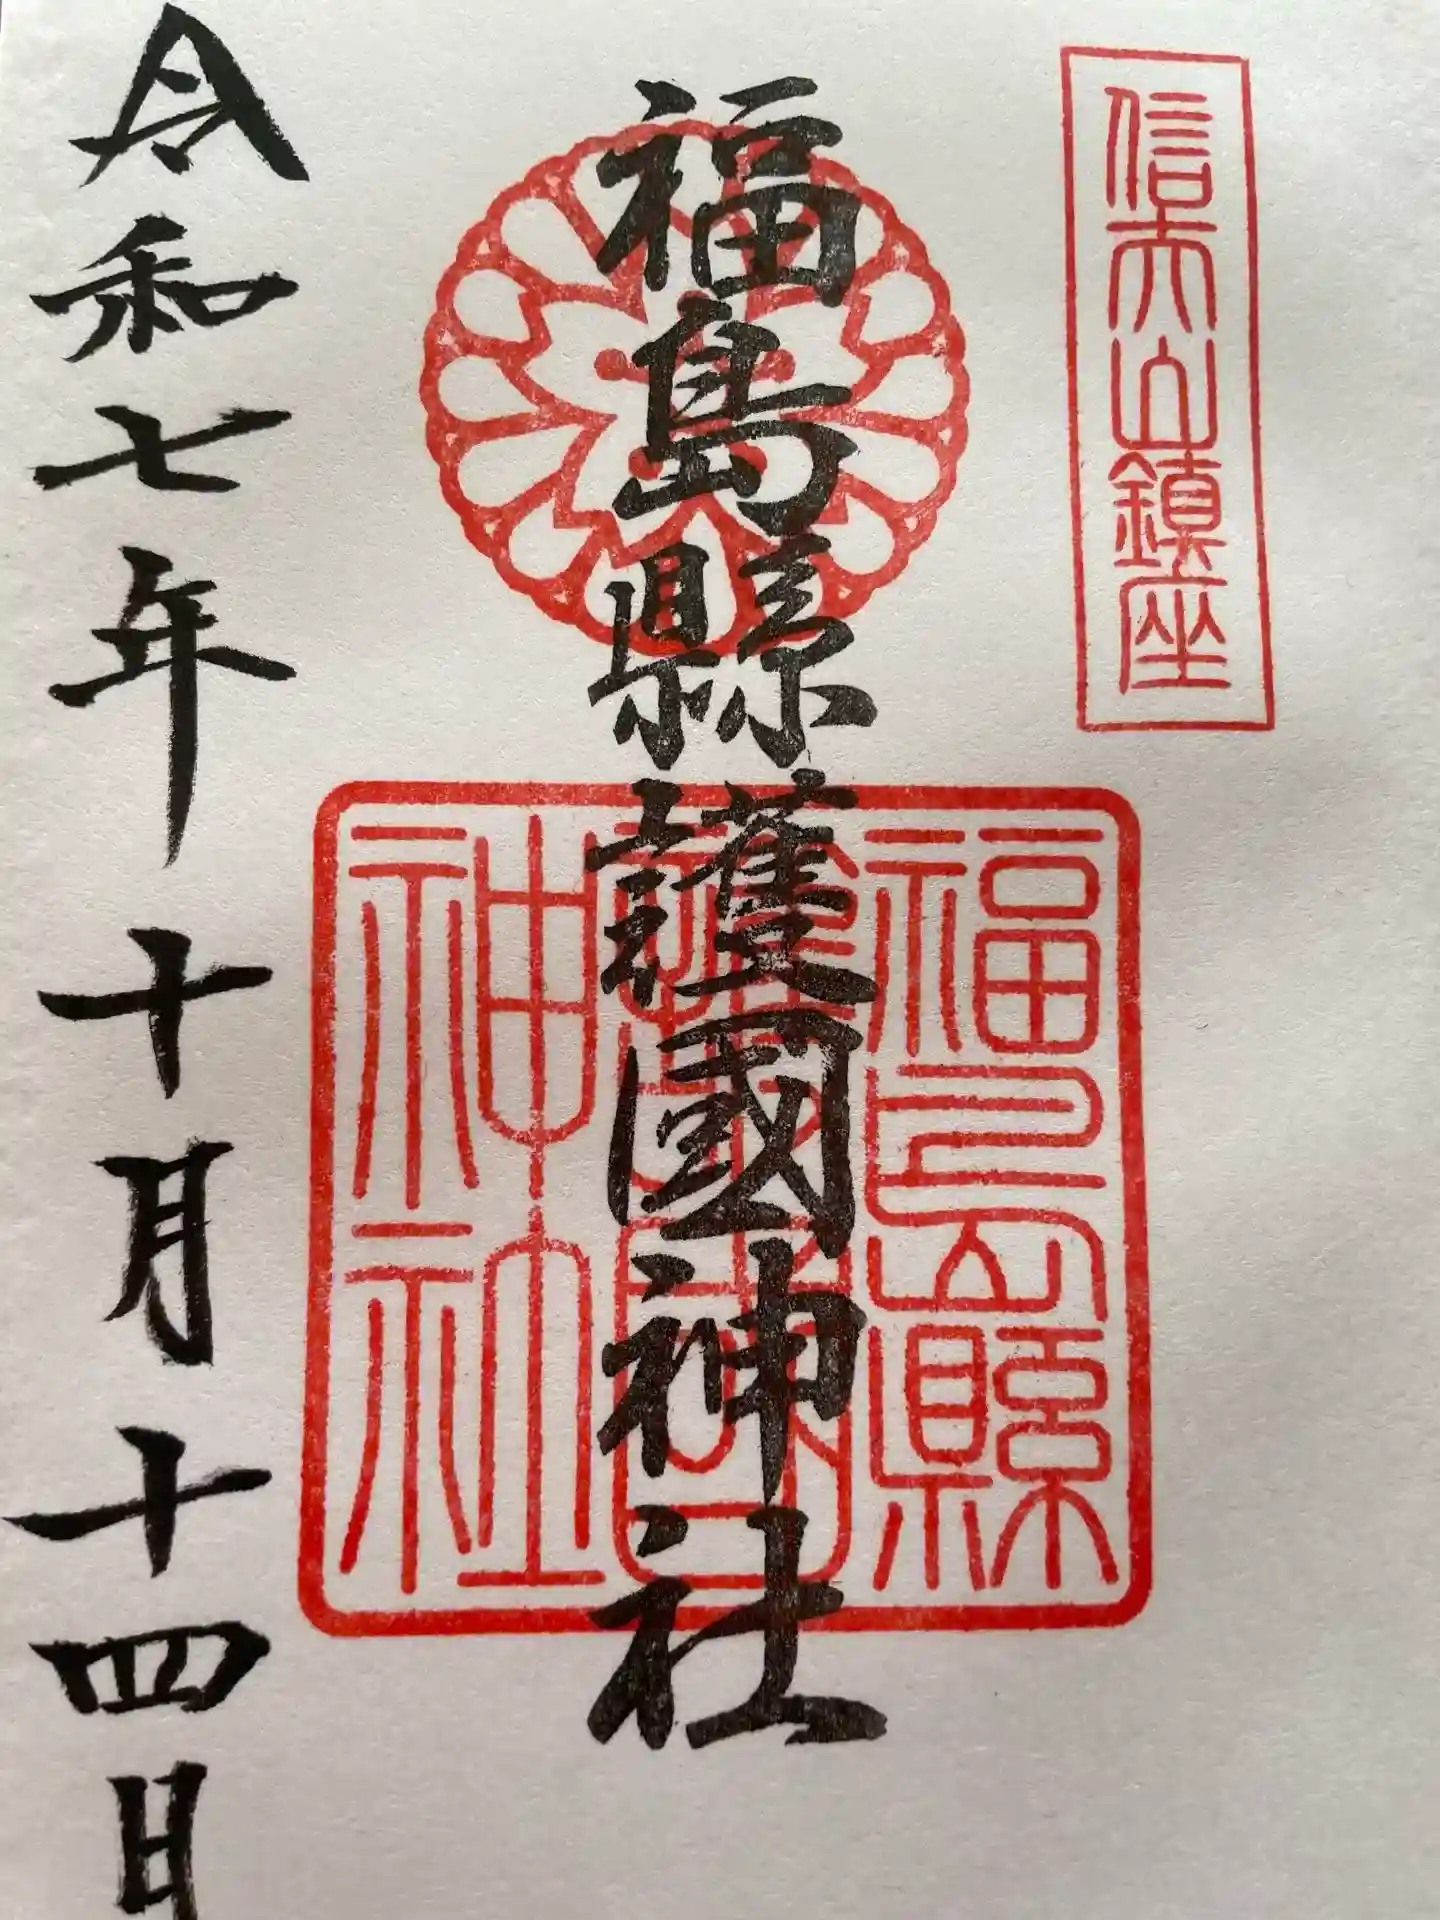 信夫山鎮座
福島縣護國神社
福島縣
護國
神社
令和七年十月十四日